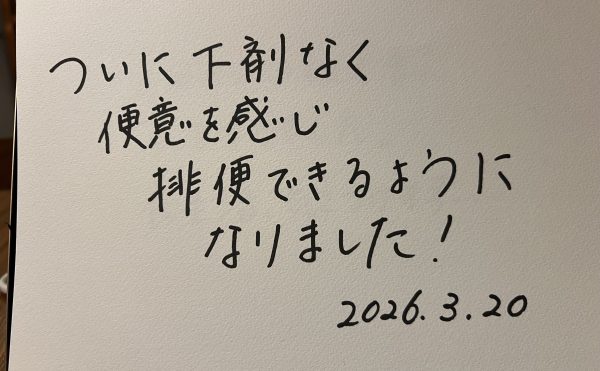 ついに下剤なく
便意を感じ
排便できるように
なりました!
2026.3.20